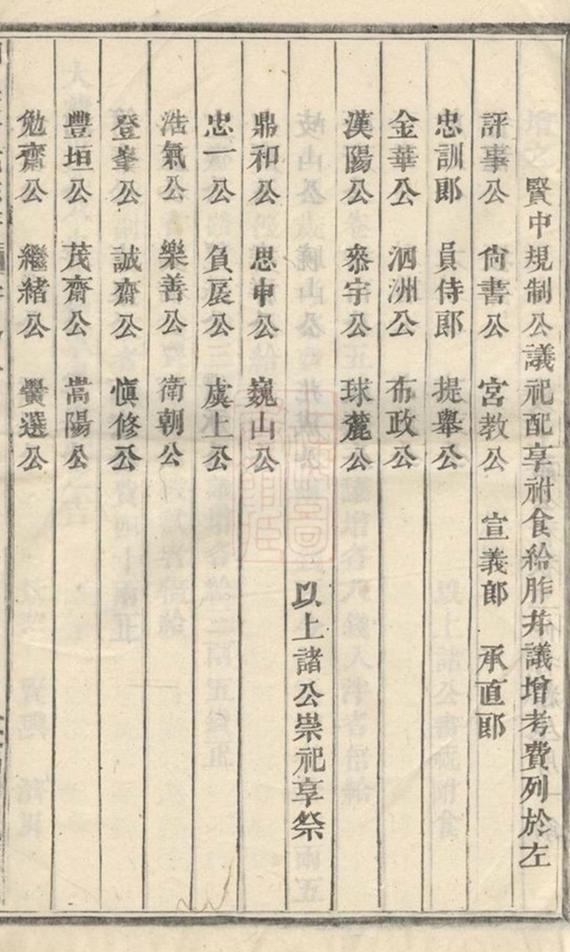 賢中規制公議祀配享祔食給胙并議增考費列於左
評事公 尙書公 宮教公 宣義郎 承直郎
忠訓郎 員侍郎 提舉公
金華公 泗洲公 布政公
漢陽公 叅宇公 球麓公
以上諸公崇祀享祭
鼎和公 思中公 巍山公
忠一公 負扆公 虞上公
浩氣公 樂善公 衛朝公
登峯公 誠齋公 愼修公
豐垣公 茂齋公 嵩陽公
勉齋公 繼緒公 選公